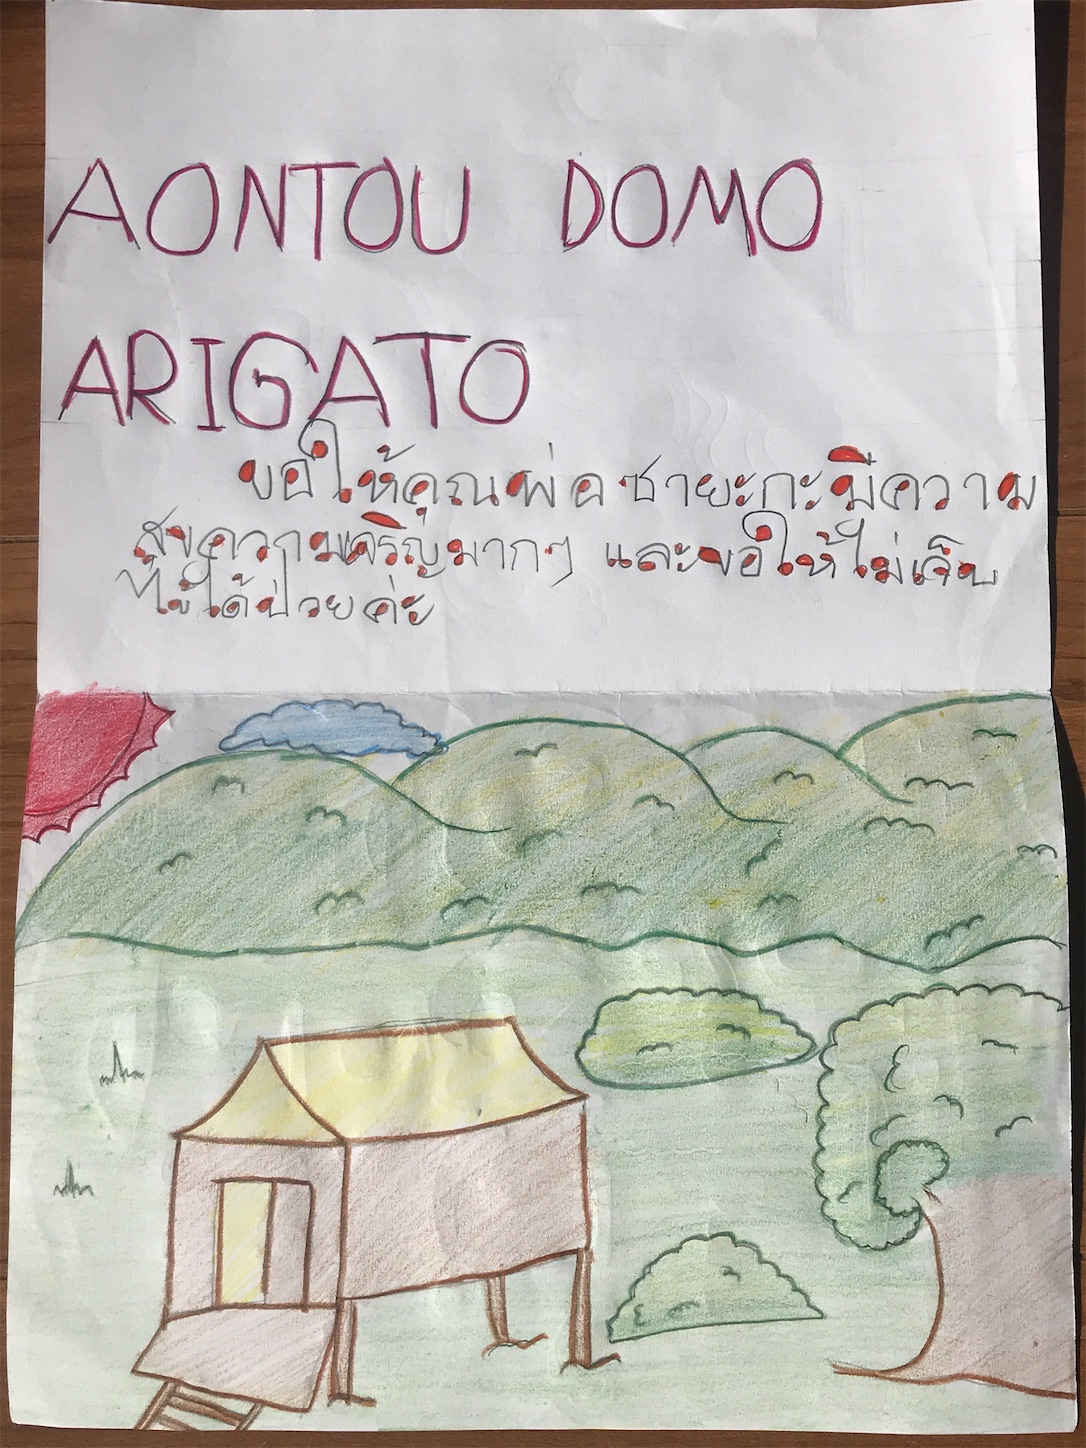 AONTOU DOMO
ARIGATO
ขอให้คุณพ่อซายะกะมีความ
สุขความเจริญมากๆ และขอให้ไม่เจ็บ
ไข้ได้ป่วยค่ะ